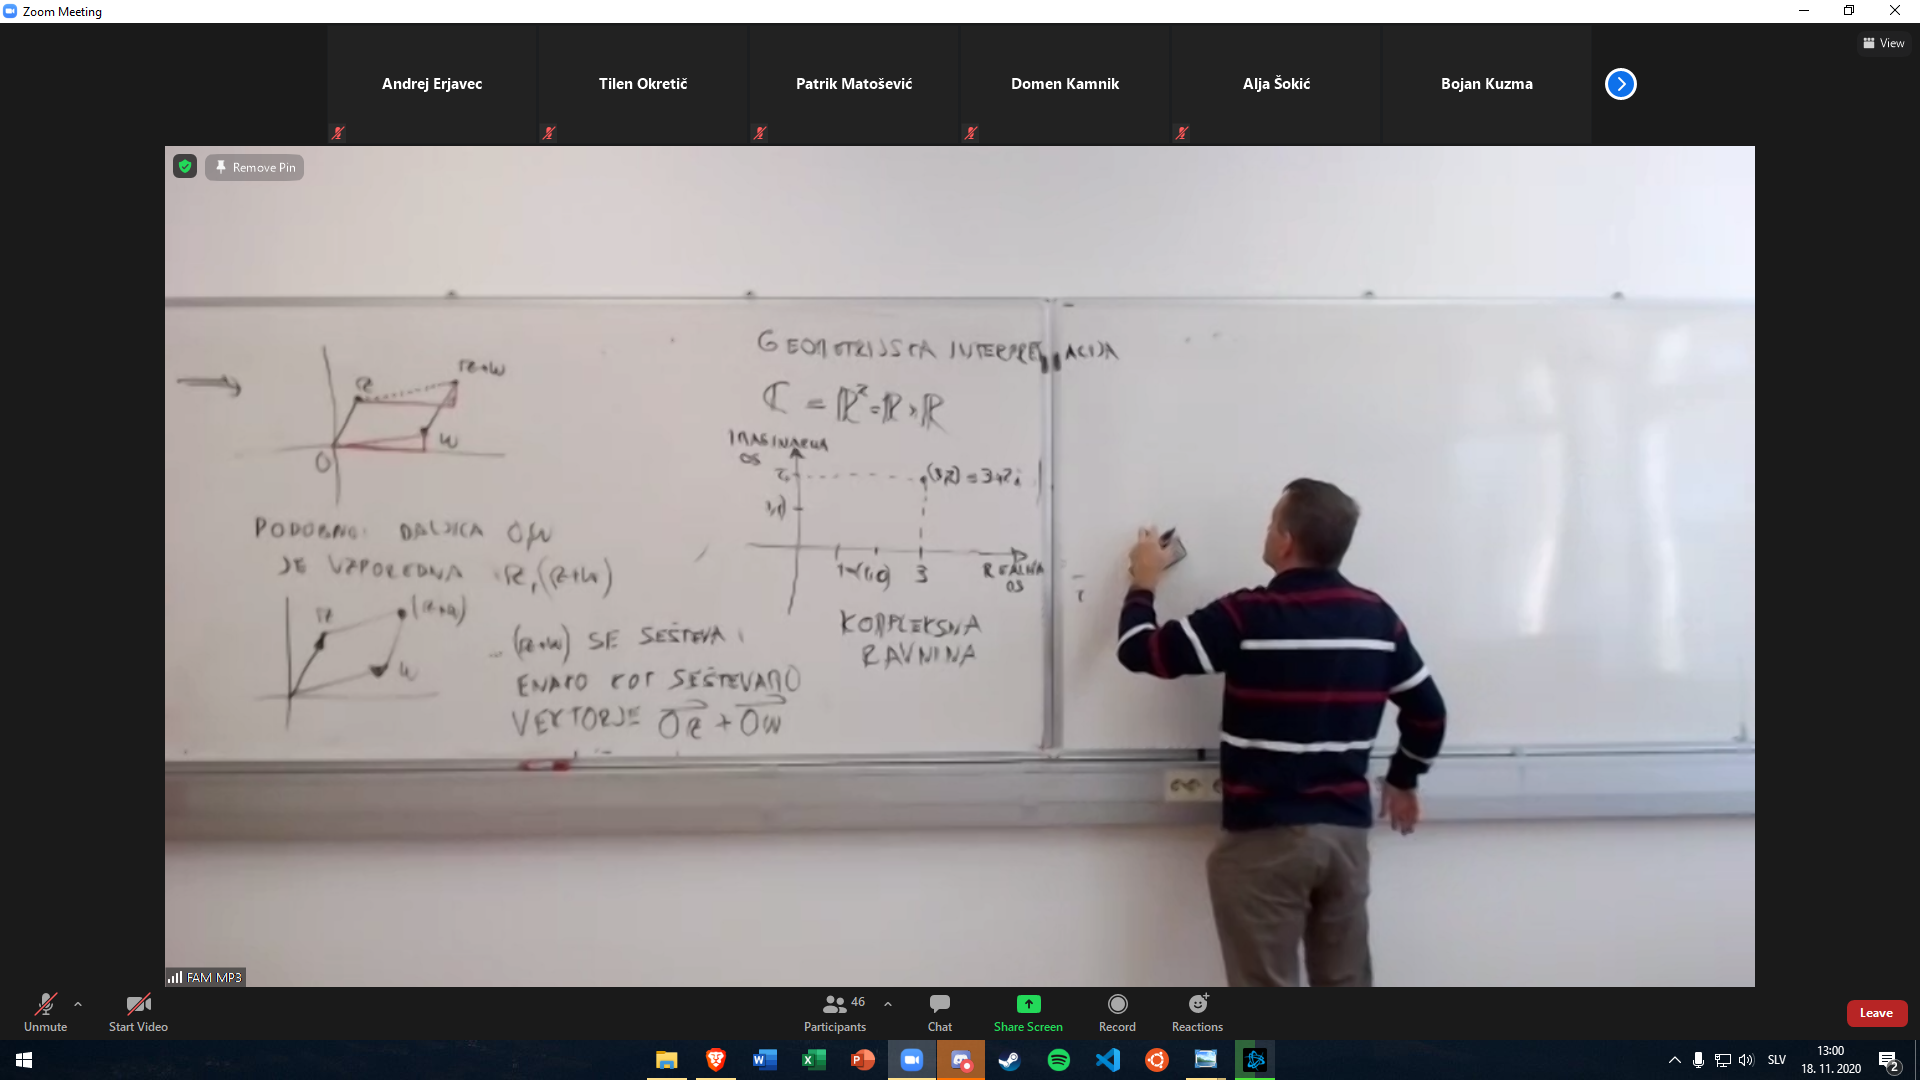 Zoom Meeting
View
Andrej Erjavec
Tilen Okretič
Patrik Matošević
Domen Kamnik
Alja Šokić
Bojan Kuzma
Remove Pin
z
z+w
0
w
PODOBNO: DALJICA 0,W
JE VZPOREDNA z,(z+w)
z
(z+w)
w
(z+w) SE SEŠTEVA
ENAKO KOT SEŠTEVAMO
VEKTORJE 0z + 0w
GEOMETRIJSKA INTERPRETACIJA
ℂ = ℝ² = ℝ × ℝ
IMAGINARNA
OS
(3,2) = 3+2i
3
REALNA
OS
KOMPLEKSNA
RAVNINA
FAM MP3
Unmute
Start Video
46
Participants
Chat
Share Screen
Record
Reactions
Leave
SLV
13:00
18. 11. 2020
2